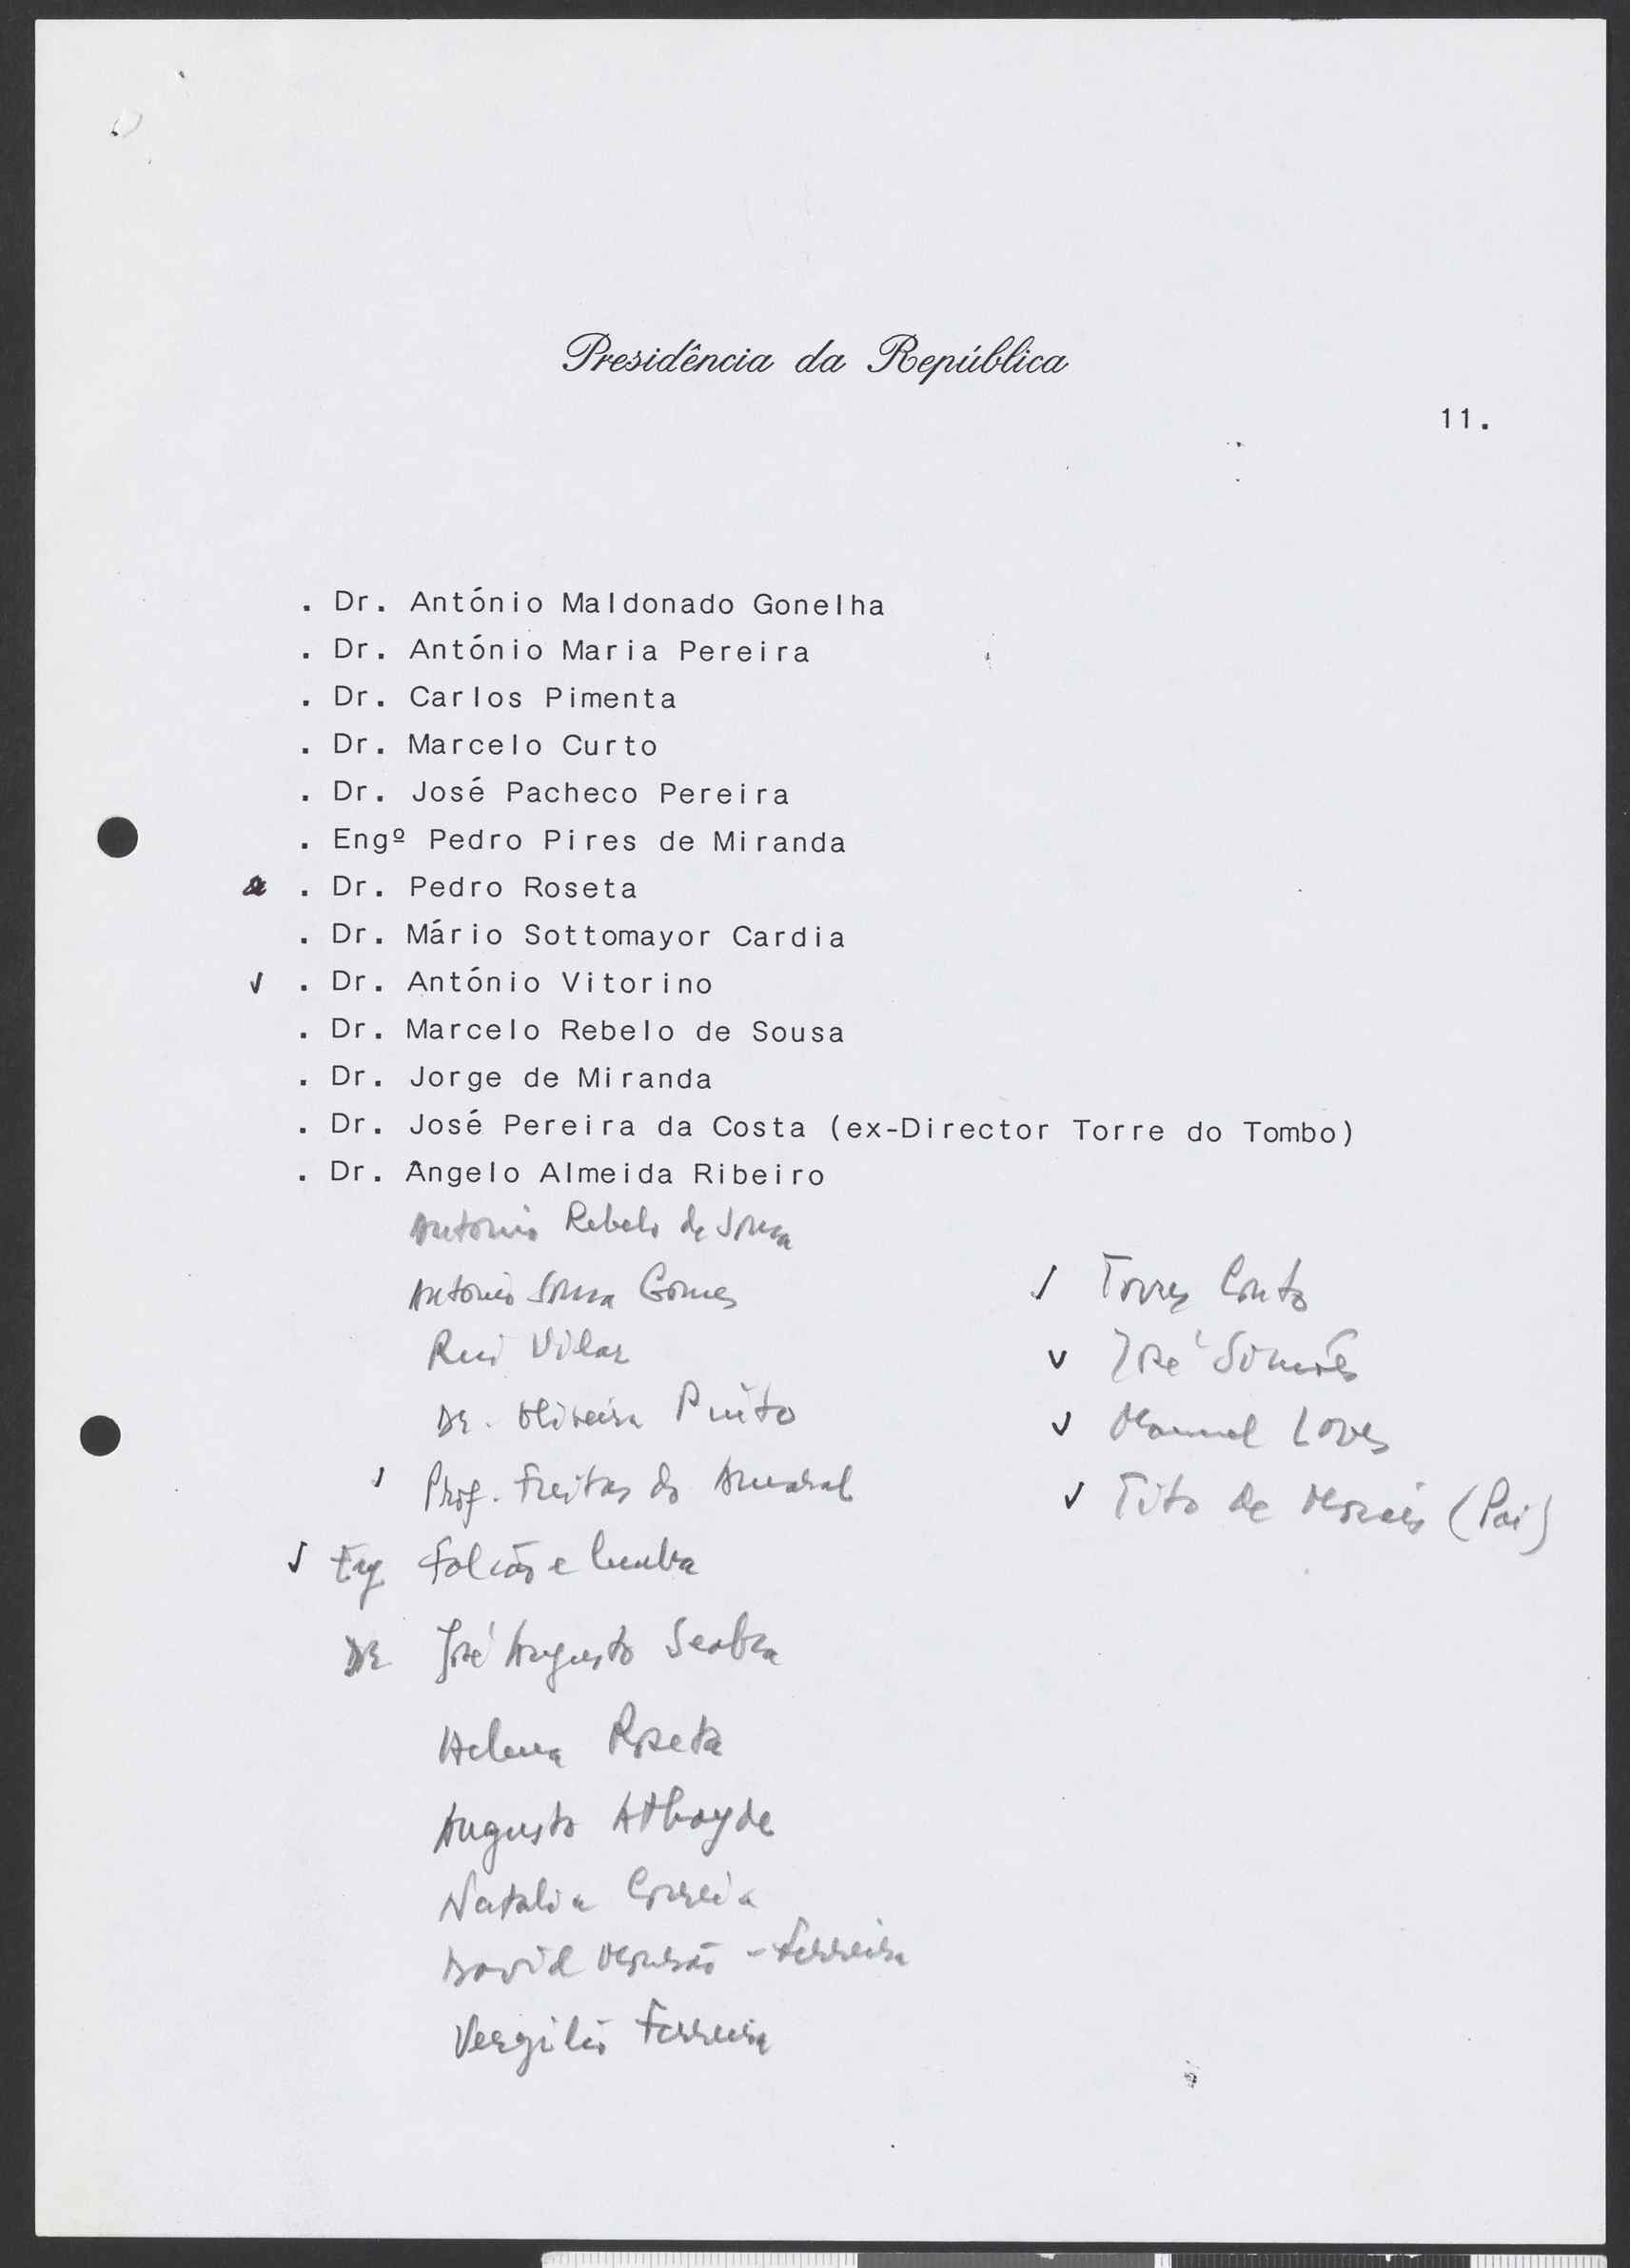 Presidência da República
11.
. Dr. António Maldonado Gonelha
. Dr. António Maria Pereira
. Dr. Carlos Pimenta
. Dr. Marcelo Curto
. Dr. José Pacheco Pereira
. Engº Pedro Pires de Miranda
. Dr. Pedro Roseta
. Dr. Mário Sottomayor Cardia
✓ . Dr. António Vitorino
. Dr. Marcelo Rebelo de Sousa
. Dr. Jorge de Miranda
. Dr. José Pereira da Costa (ex-Director Torre do Tombo)
. Dr. Ângelo Almeida Ribeiro
António Rebelo de Sousa
António Sousa Gomes
Rui Vilar
Dr. Oliveira Pinto
✓ Prof. Freitas do Amaral
✓ Eng Falcão e Cunha
Dr José Augusto Seabra
Helena Roseta
Augusto Athayde
Natalia Correia
David Mourão-Ferreira
Vergílio Ferreira
✓ Torres Couto
✓ José Simões
✓ Manuel
✓ Tito de Morais (Pai)